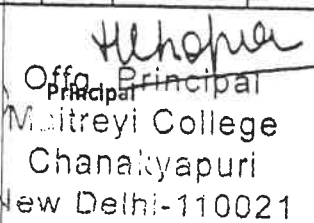 Offg. Principal
Principal
Maitreyi College
Chanakyapuri
New Delhi-110021